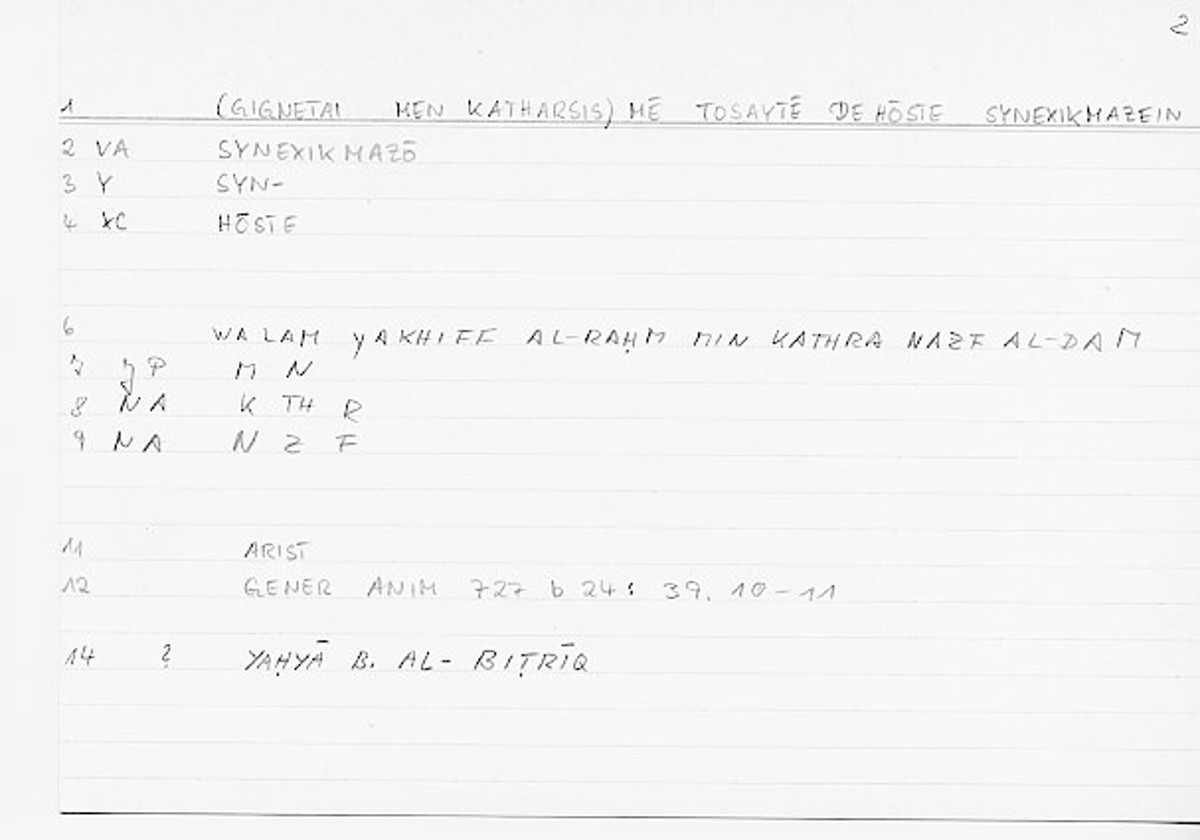 2
1 (GIGNETAI MEN KATHARSIS) MĒ TOSAYTĒ DE HŌSTE SYNEXIKMAZEIN
2 VA SYNEXIKMAZŌ
3 Y SYN-
4 XC HŌSTE
6 WA LAM YAKHIFF AL-RAḤM MIN KATHRA NAZF AL-DAM
7 JP M N
8 NA K TH R
9 NA N Z F
11 ARIST
12 GENER ANIM 727 b 24: 39. 10-11
14 ? YAḤYĀ B. AL-BIṬRĪQ